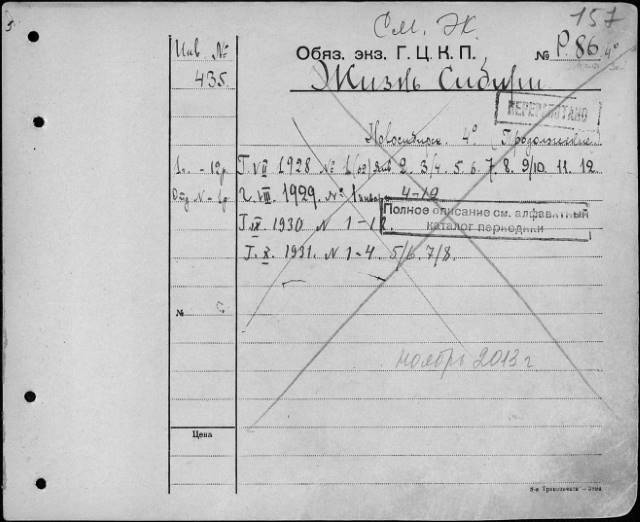 См. Ж.
157
Инв. №
435.
Обяз. экз. Г. Ц. К. П.
№ Р. 86 4°
Жизнь Сибири
ПЕРЕРАБОТАНО
Новосибирск. 4° (Продолжение)
1р. - 12р
Г. VII 1928 № 1 (62) янв 2. 3/4. 5. 6. 7. 8. 9/10. 11. 12.
Отд № - 1р
г. VIII. 1929. № 1 январь 4-12
Полное описание см. алфавитный
каталог периодики
Г. IX. 1930 N 1-12.
Г. X. 1931. N 1-4. 5/6. 7/8.
№
ноябрь 2013 г
Цена